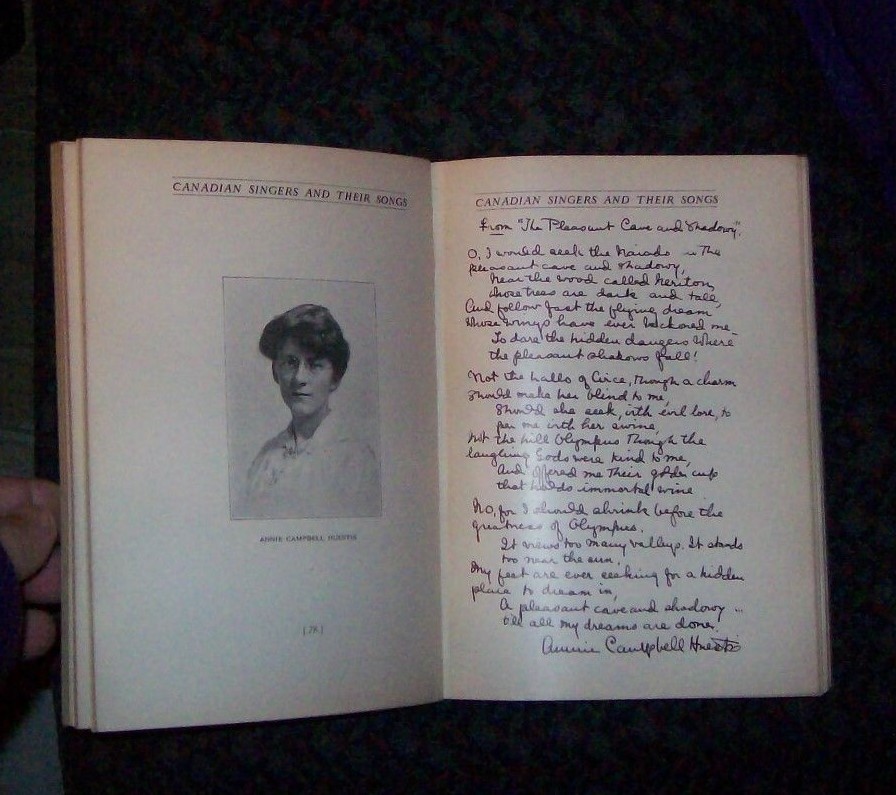 CANADIAN SINGERS AND THEIR SONGS
ANNIE CAMPBELL HUESTIS
[78]
CANADIAN SINGERS AND THEIR SONGS
From "The Pleasant Cave and Shadowy".
O, I would seek the Naiads in The
pleasant cave and shadowy,
Near the wood called Neriton,
whose trees are dark and tall,
And follow fast the flying dream
whose wings have ever beckoned me—
To dare the hidden dangers where
the pleasant shadows fall!
Not the halls of Circe, though a charm
should make her blind to me,
Should she seek, with evil lore, to
pen me with her swine,
Not the hill Olympus Though the
laughing Gods were kind to me,
And offered me Their golden cup
that holds immortal wine
No, for I should shrink before the
greatness of Olympus.
It views too many valleys. It stands
too near the sun.
My feet are ever seeking for a hidden
place to dream in,
A pleasant cave and shadowy ...
till all my dreams are done.
Annie Campbell Huestis